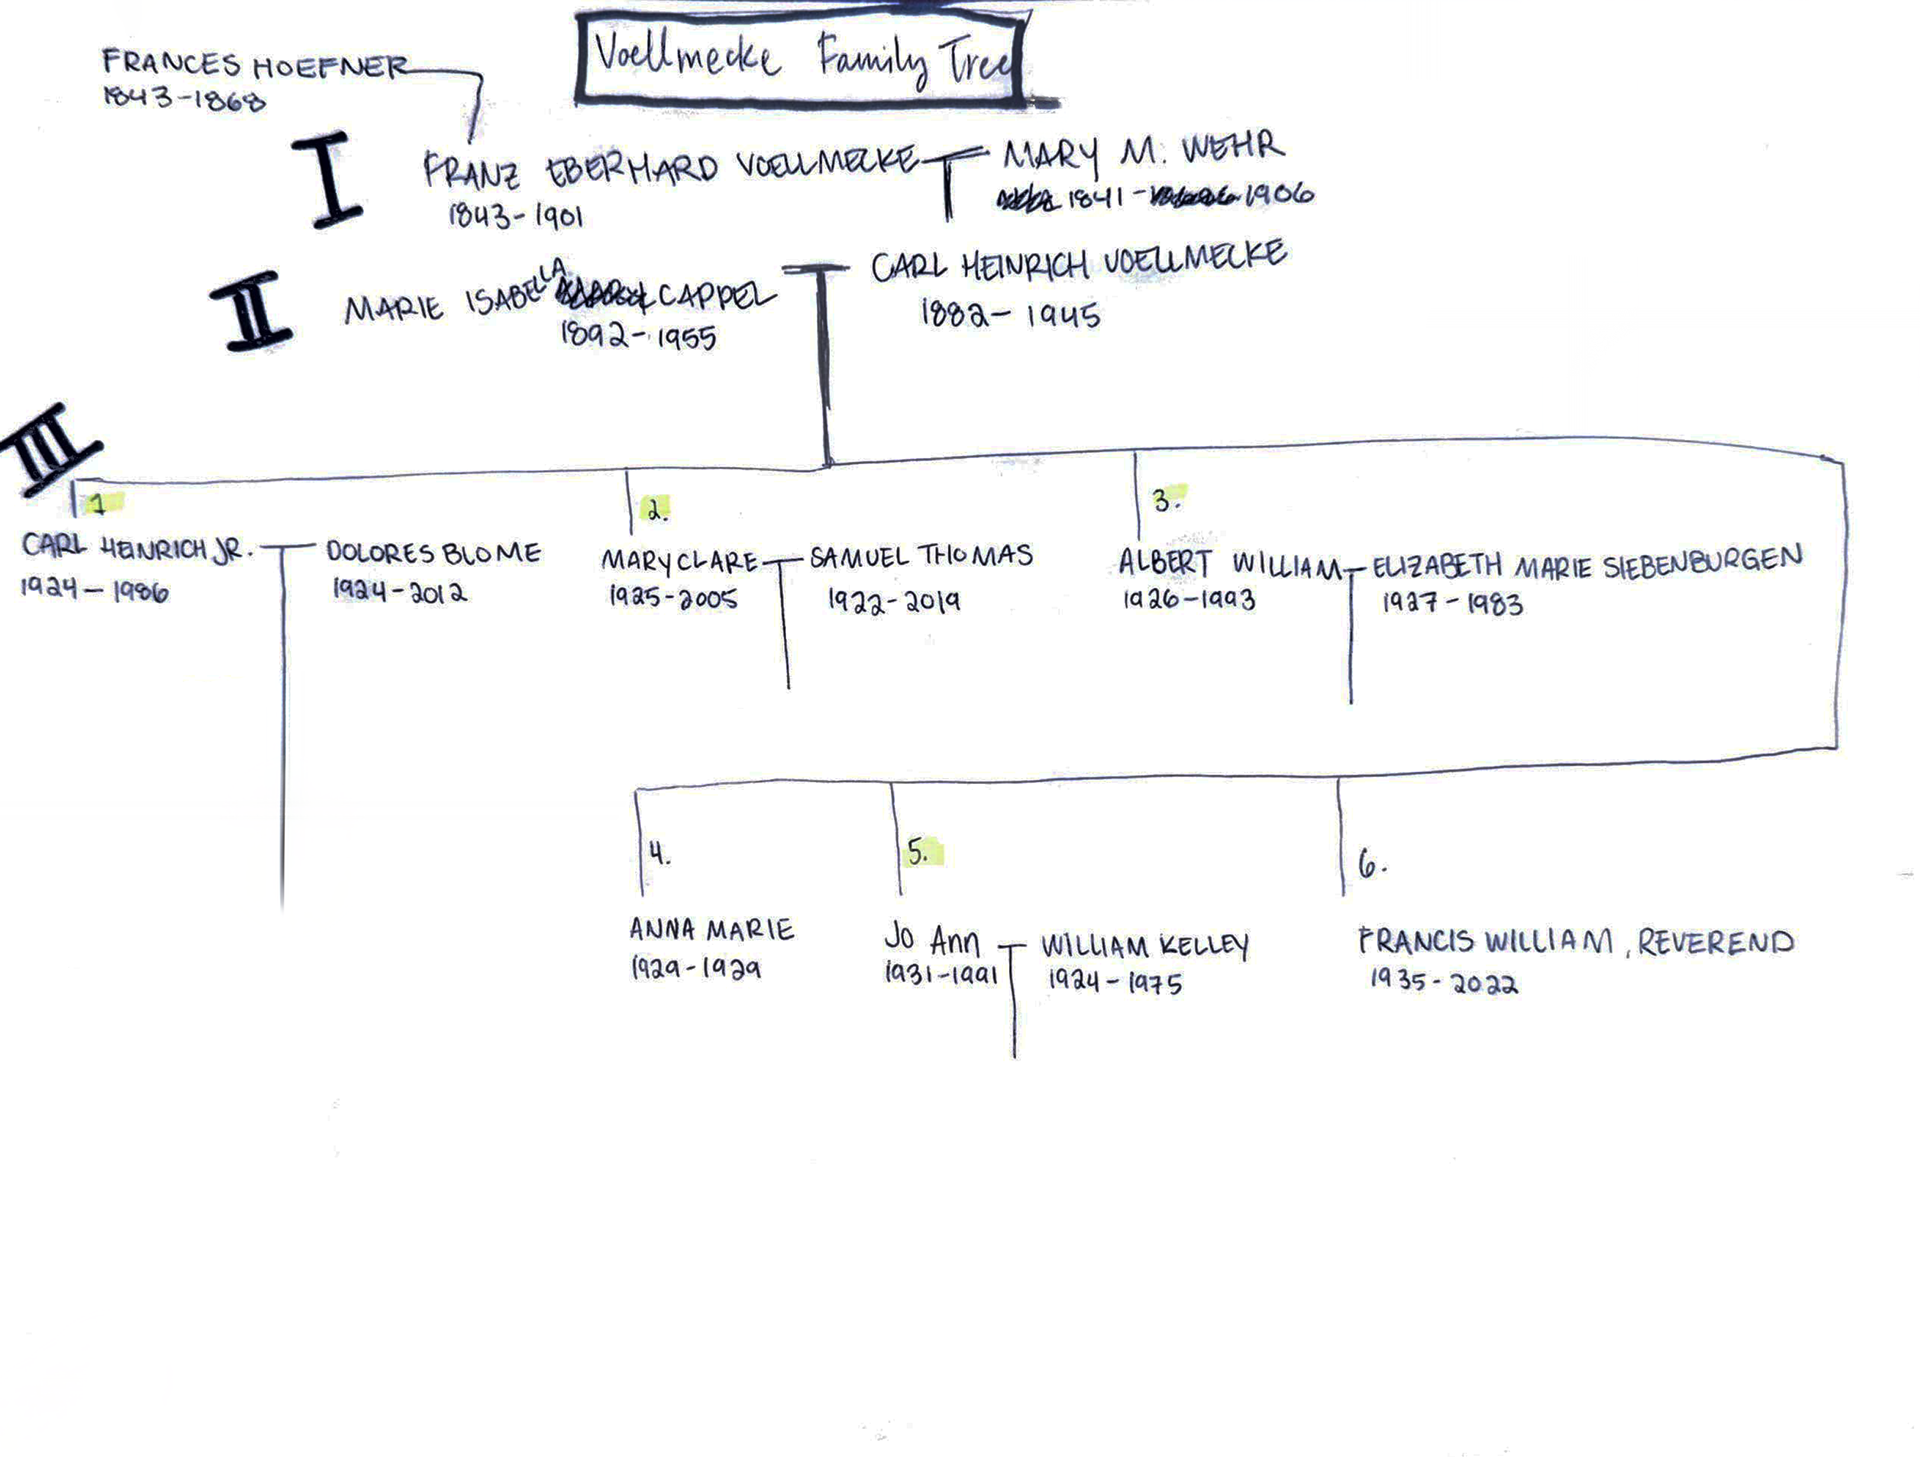 Voellmecke Family Tree
FRANCES HOEFNER
1843-1868
I
FRANZ EBERHARD VOELLMECKE
1843-1901
MARY M. WEHR
1841 - 1906
II
MARIE ISABELLA CAPPEL
1892-1955
CARL HEINRICH VOELLMECKE
1882-1945
III
1
CARL HEINRICH JR.
1924-1986
DOLORES BLOME
1924-2012
2.
MARY CLARE
1925-2005
SAMUEL THOMAS
1922-2019
3.
ALBERT WILLIAM
1926-1993
ELIZABETH MARIE SIEBENBURGEN
1927-1983
4.
ANNA MARIE
1929-1929
5.
Jo Ann
1931-1991
WILLIAM KELLEY
1924-1975
6.
FRANCIS WILLIAM, REVEREND
1935-2022